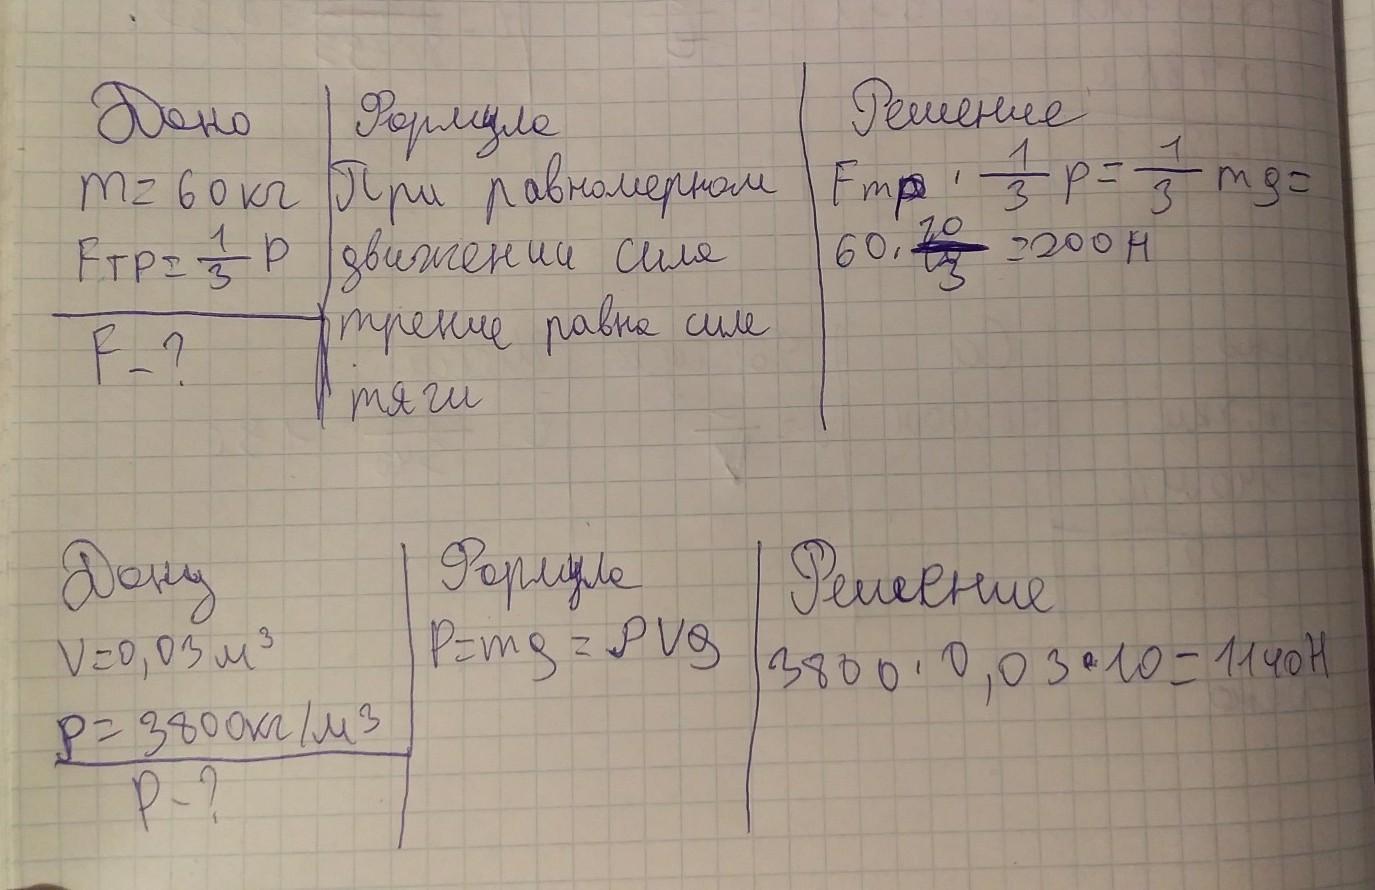 Дано
m = 60 кг
Fтр = 1/3 P
F - ?
Формула
При равномерном
движении сила
трение равна силе
тяги
Решение
Fтр · 1/3 P = 1/3 mg =
60 · 10/3 = 200 Н
Дону
V = 0,03 м³
ρ = 3800 кг/м³
P - ?
Формула
P = mg = ρVg
Решение
3800 · 0,03 · 10 = 1140 Н